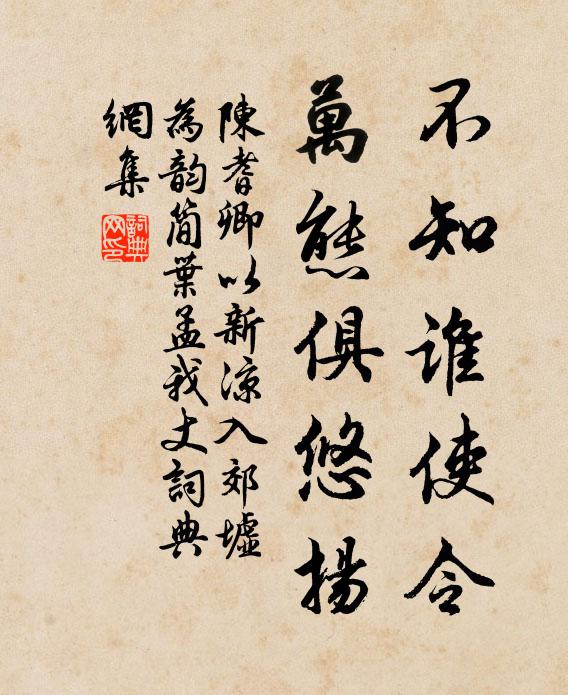 不知谁使令
萬態俱悠揚
陳耆卿以新凉入郊墟
為韵简葉孟我丈詞典
網集
詞典网印